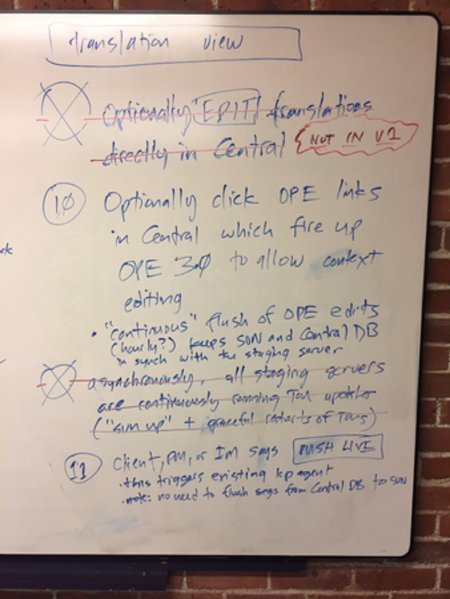 translation view
Optionally "EDIT" translations
directly in Central
NOT IN V1
10 Optionally click OPE links
in Central which fire up
OPE 3.0 to allow context
editing
• "continuous" flush of OPE edits
(hourly?) keeps SUN and Central DB
in synch with the staging server
asynchronously, all staging servers
are continuously running updater
("sum up" + graceful restarts of
11 client, PM, or IM says PUSH LIVE
• this triggers existing agent
• note: no need to flush segs from Central DB to SUN